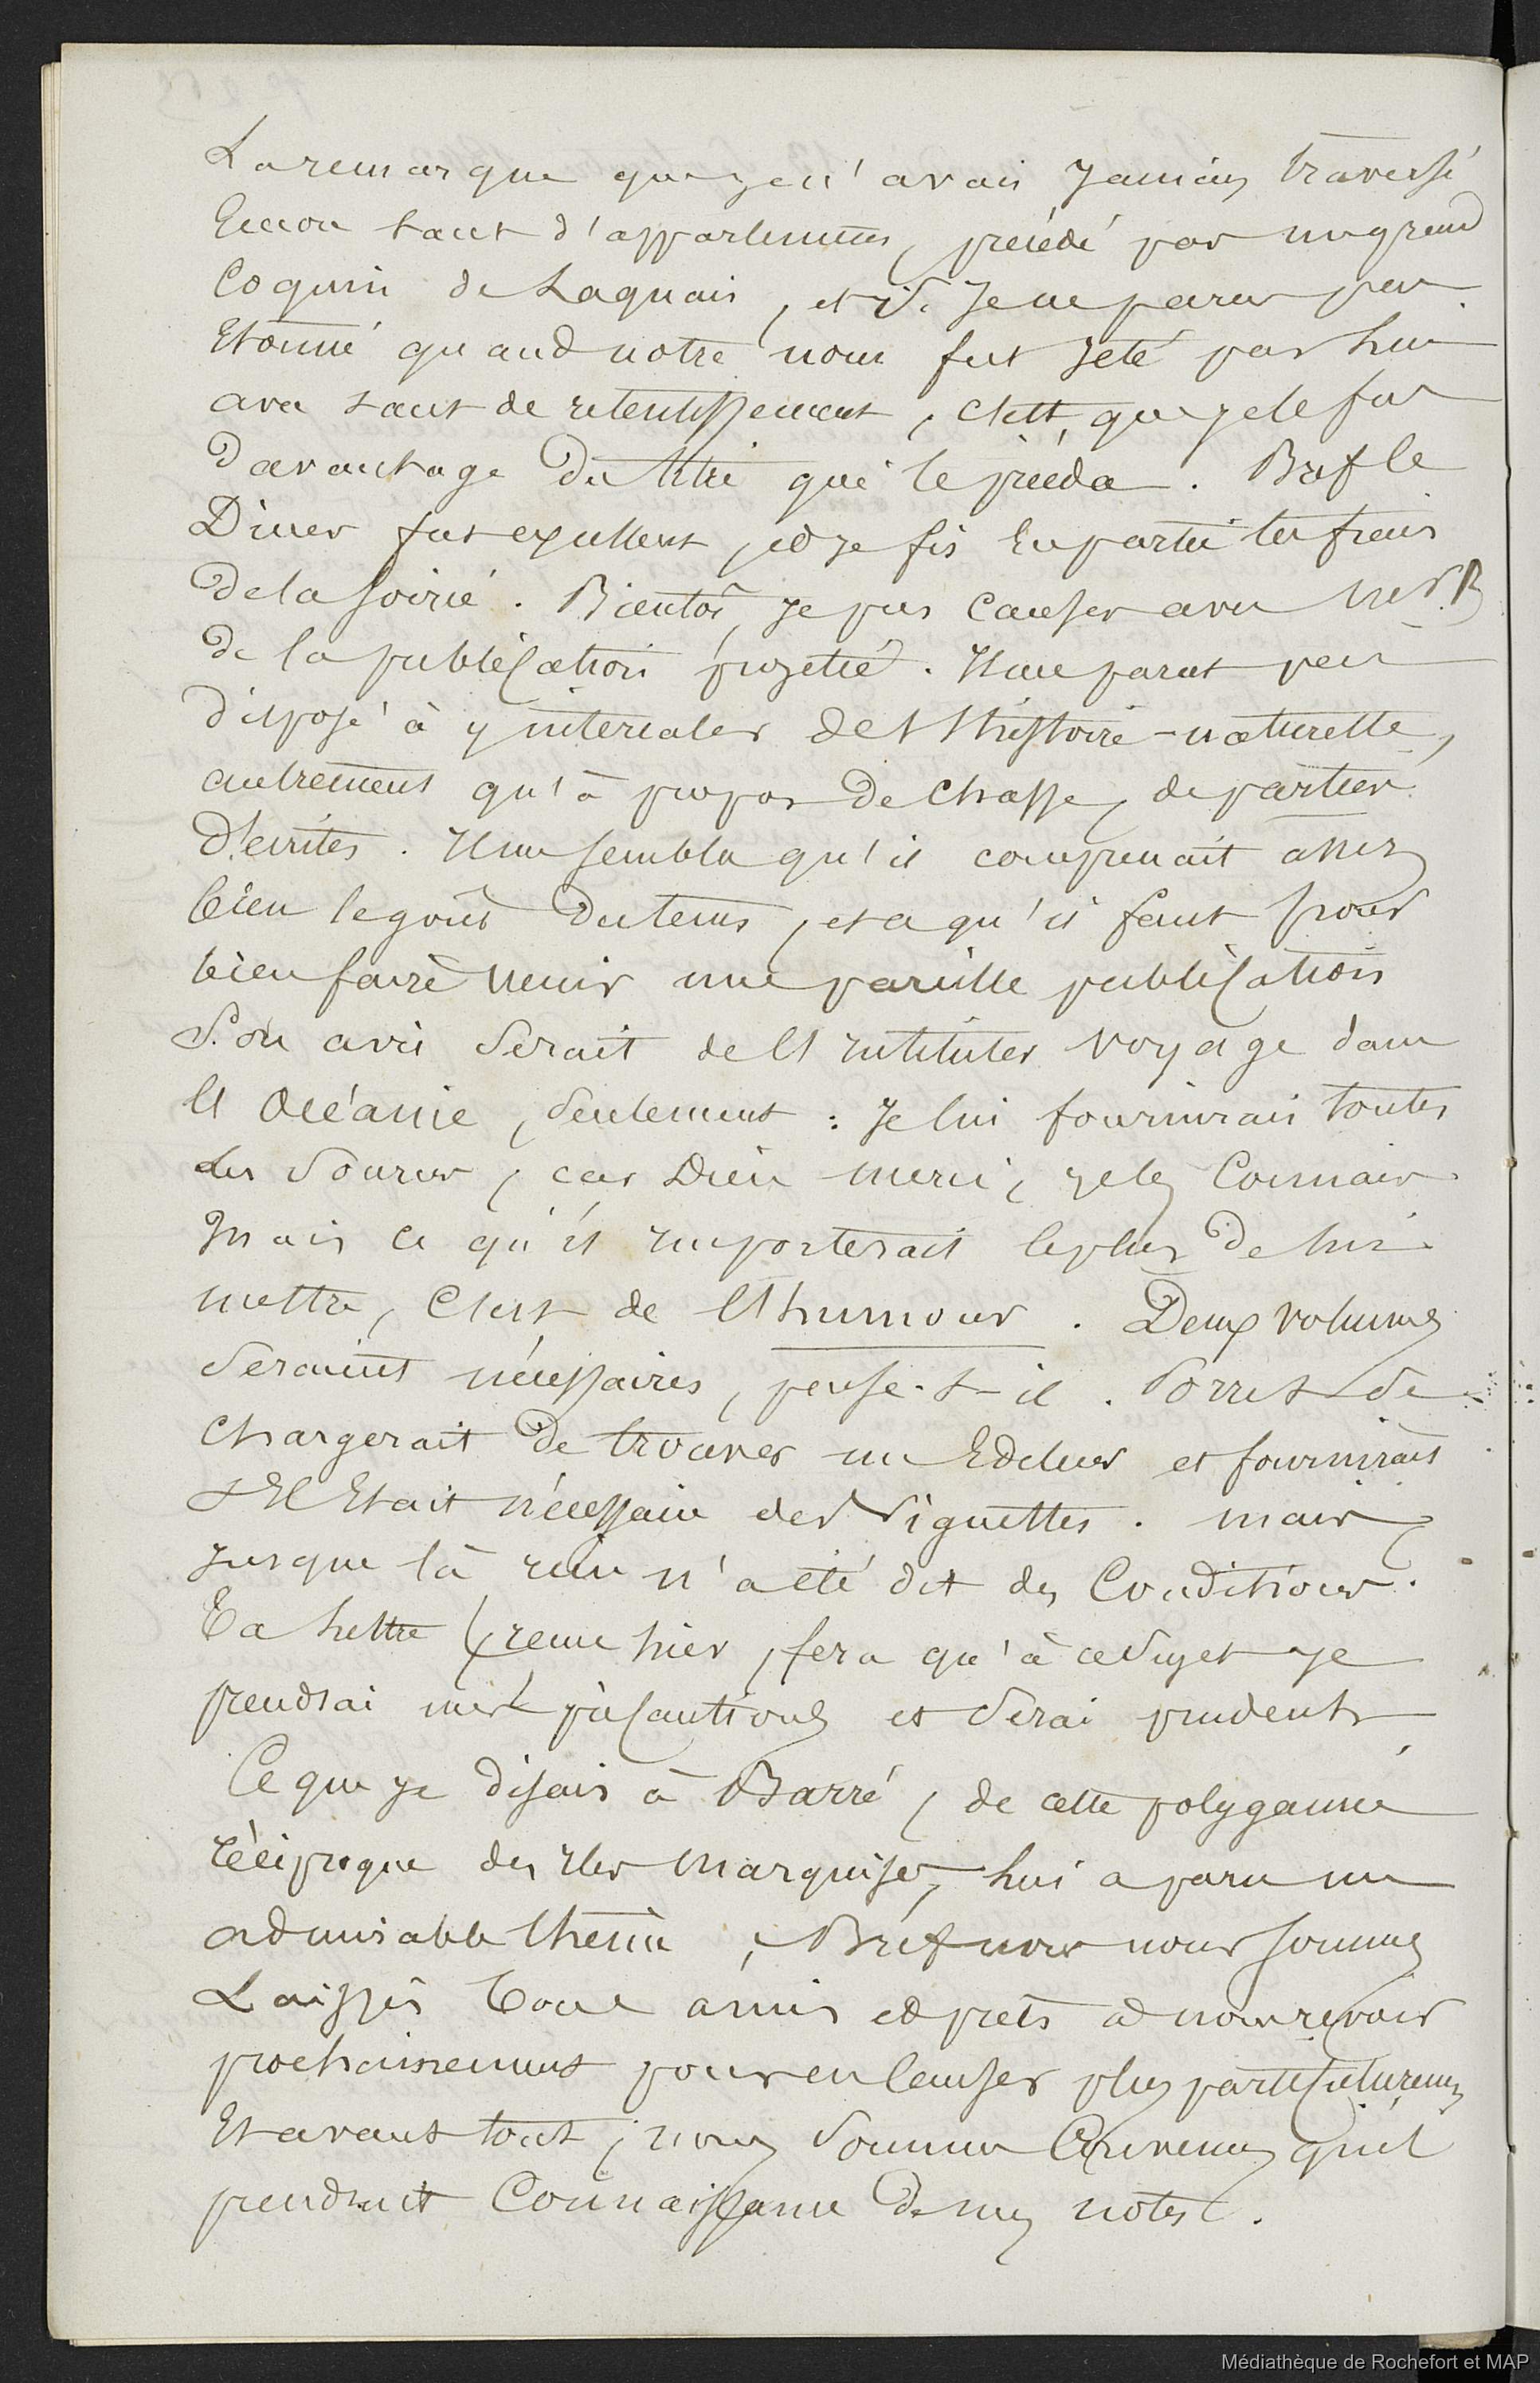 La remarque que je n'avais Jamais traversé
Encore tant d'appartements, précédé par un grand
Coquin de Laquais, et si Je ne parus pas
Etonné quand notre nom fut Jeté par lui
avec tant de retentissement, c'est que je le fus
Davantage Du titre qui le précéda. Bref le
Diner fut excellent, et Je fis En partie les frais
De la soirée. Bientôt, Je pus Causer avec
de la publication projetée. Il me parut peu
disposé à y intercaler de l'histoire-naturelle,
autrement qu'à propos De Chasse, de parties
Il me sembla qu'il comprenait assez
bien le goût Du tems, et ce qu'il faut pour
bien faire venir une pareille publication
Son avis Serait de l'Intituler Voyage dans
l'Océanie, Seulement : Je lui fournirais toutes
les Sources, car Dieu merci, je les Connais.
Mais ce qu'il Importerait le plus De lui
mettre, C'est de l'humour. Deux volumes
Seraient nécessaires, pense-t-il. Porret Se
Chargerait De trouver un Editeur et fournirait
s'Il Etait nécessaire des Vignettes. mais
Jusque là rien n'a été dit des Conditions.
Ta Lettre reçue hier, fera qu'à ce Sujet Je
prendrai mes précautions et Serai prudent
Ce que je disais à Barré, de cette polygamie
réciproque des Iles Marquises, lui a paru un
admirable thème, Bref nous nous sommes
Laissés bons amis et prêts à nous revoir
prochainement pour en Causer plus particulièrem^t
Et avant tout, nous Sommes Convenus qu'il
prendrait Connaissance De mes notes.
Médiathèque de Rochefort et MAP